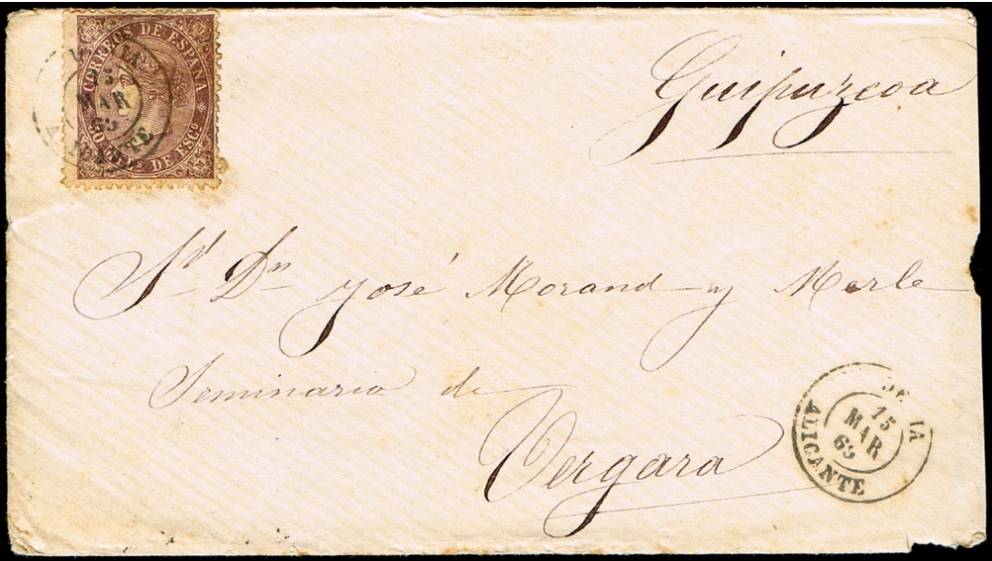 CORREOS DE ESPAÑA
50 MILs DE ESCo.
15
MAR
69
Guipuzcoa
Sr Dn José Morand y Merle
Seminario de
Vergara
15
MAR
69
ALICANTE